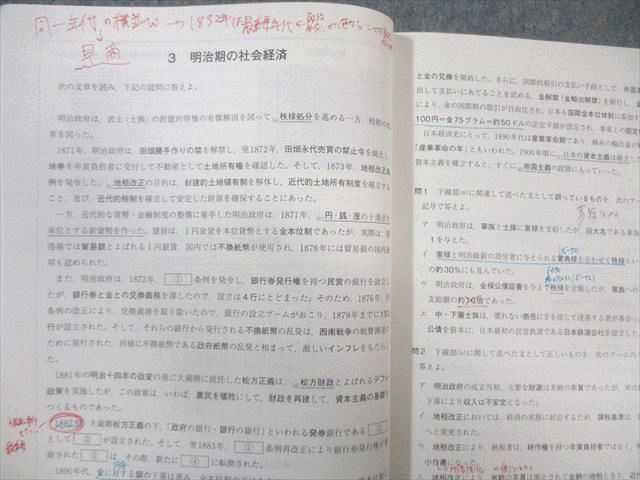 同一年代の横並び→1882年は最重要年代
早商
3 明治期の社会経済
次の文章を読み，下記の設問に答えよ。
明治政府は，武士（士族）の封建的特権の有償解消を図って(a)秩禄処分を進める一方，税制の改
革を図った。
1871年，明治政府は，田畑勝手作りの禁を解禁し，翌1872年，田畑永代売買の禁止令を廃止し，
地券を年貢負担者に交付して不動産として土地所有権を確認した。そして，1873年，地租改正条
例を発令した。(b)地租改正の目的は，封建的土地領有制を解体し，近代的土地所有制度を確立する
こと，及び，近代的税制を確立して安定した財源を確保することにあった。
一方，近代的な貨幣・金融制度の整備に着手した明治政府は，1871年，(c)円・銭・厘の十進法を
単位とする新貨幣を作った。建前は，1円金貨を本位貨幣とする金本位制であったが，実際は，開
港場では貿易銀とよばれる1円銀貨，国内では不換紙幣が使用され，1878年には貿易銀の国内通
用も認められた。
また，明治政府は，1872年，① 条例を発令し，銀行券発行権を持つ民営の銀行を設立し
たが，銀行券と金との兌換義務を課したので，設立は4行にとどまった。そのため，1876年，同
条例の改正により，兌換義務を取り除いたので，銀行の設立ブームがおこり，1879年までに153
行が設立された。そして，それらの銀行から発行される不換紙幣の乱発は，西南戦争の戦費調達の
ために発行された，同様に不換紙幣である政府紙幣の乱発と相まって，激しいインフレをもたらし
た。
1881年の明治十四年の政変の後に大蔵卿に就任した松方正義は，(d)松方財政とよばれるデフレ
政策を実施したが，この政策は，いわば，農民を犠牲にして，財政を再建して，資本主義の基礎を
つくるものであった。
1882年，大蔵卿松方正義の下，「政府の銀行・銀行の銀行」といわれる発券銀行である
として ② が設立された。そして，翌1883年，① 条例再改正により銀行券発行権が奪
取された ① は，その際，新たに ④ に転換された。
1890年代，金に対する銀の下落は進み
と金の兌換を開始した。さらに，国際的取引の支払い手段として，外国
出して支払いにあてることを認める，金解禁（金輸出解禁）を断行し，
により，金の国際間の取引が自由化され，日本も国際金本位体制に参加
100円＝金75グラム＝約50ドルの法定平価が設定され，事実上の固定
日本経済史にとって，1890年代は産業革命期であり，綿糸の輸出量が
「産業革命の年」ともいわれた。1900年頃に，日本の資本主義は確立した
資本主義が確立すると，すぐに帝国主義の段階に入っていった。
問1 下線部(a)に関連して述べた文として誤っているものを，次のア
記号で答えよ。
ア 明治政府は，華族と士族に家禄を支給したが，旧大名である華族
1を与えた。
イ 家禄と明治維新の功労者に与えられる賞典禄を合わせて秩禄といい
の約30%にも及んでいた。
ウ 明治政府は，金禄公債証書を与えて秩禄を全廃したが，華族への
支給額の約30倍であった。
エ 中・下層士族は，慣れない商売に手を出して没落する者が多かった
公債を資本に，日本最初の民営鉄道である日本鉄道会社を設立した
問2 下線部(b)に関して述べた文として正しいものを，次のア～エの
答えよ。
ア 明治政府の成立当初，主要な財源は米納の年貢であったが，米の
下落により収入は不安定となった。
イ 地租改正においては，経済の実態に対応するため，課税基準は，
へと変更された。
ウ 地租改正により，納税者は，耕作権を持つ年貢負担者ではなく，
小作農になった。